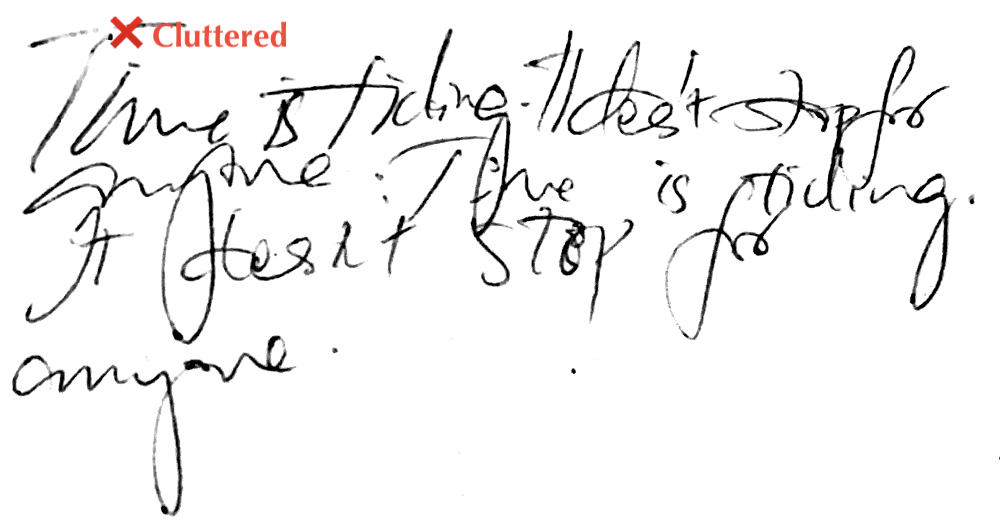 Cluttered
Time is ticking. It doesn't stop for
anyone. Time is ticking.
It doesn't stop for
anyone.